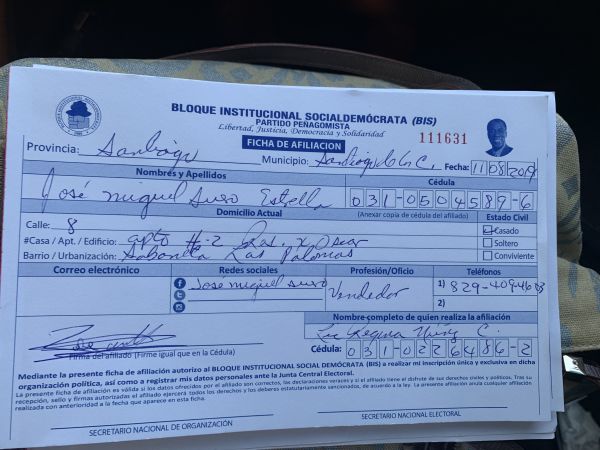 BLOQUE INSTITUCIONAL SOCIALDEMÓCRATA (BIS)
PARTIDO PEÑAGOMISTA
Libertad, Justicia, Democracia y Solidaridad
FICHA DE AFILIACION
111631
Provincia: Santiago Municipio: Santiago de los C. Fecha: 11/08/2019
Nombres y Apellidos Cédula
José Miguel Suero Estrella 031-0504589-6
Domicilio Actual (Anexar copia de cédula del afiliado) Estado Civil
Calle: 8 Casado
#Casa / Apt. / Edificio: apto #-2 Soltero
Barrio / Urbanización: Sabaneta Las Palomas Conviviente
Correo electrónico Redes sociales Profesión/Oficio Teléfonos
Jose miguel suero Vendedor 1) 829-409-46
2)
Nombre completo de quien realiza la afiliación
Regina C.
Firma del afiliado (Firme igual que en la Cédula) Cédula: 031-0226486-2
Mediante la presente ficha de afiliación autorizo al BLOQUE INSTITUCIONAL SOCIAL DEMÓCRATA (BIS) a realizar mi inscripción única y exclusiva en dicha
organización política, así como a registrar mis datos personales ante la Junta Central Electoral.
La presente ficha de afiliación es válida si los datos ofrecidos por el afiliado son correctos, las declaraciones veraces y si el afiliado tiene el disfrute de sus derechos civiles y políticos. Tras su
recepción, sello y firmas autorizadas el afiliado ejercerá todos los derechos y los deberes estatutariamente sancionados, de acuerdo a la ley. La presente afiliación anula cualquier afiliación
realizada con anterioridad a la fecha que aparece en esta ficha.
SECRETARIO NACIONAL DE ORGANIZACIÓN SECRETARIO NACIONAL ELECTORAL